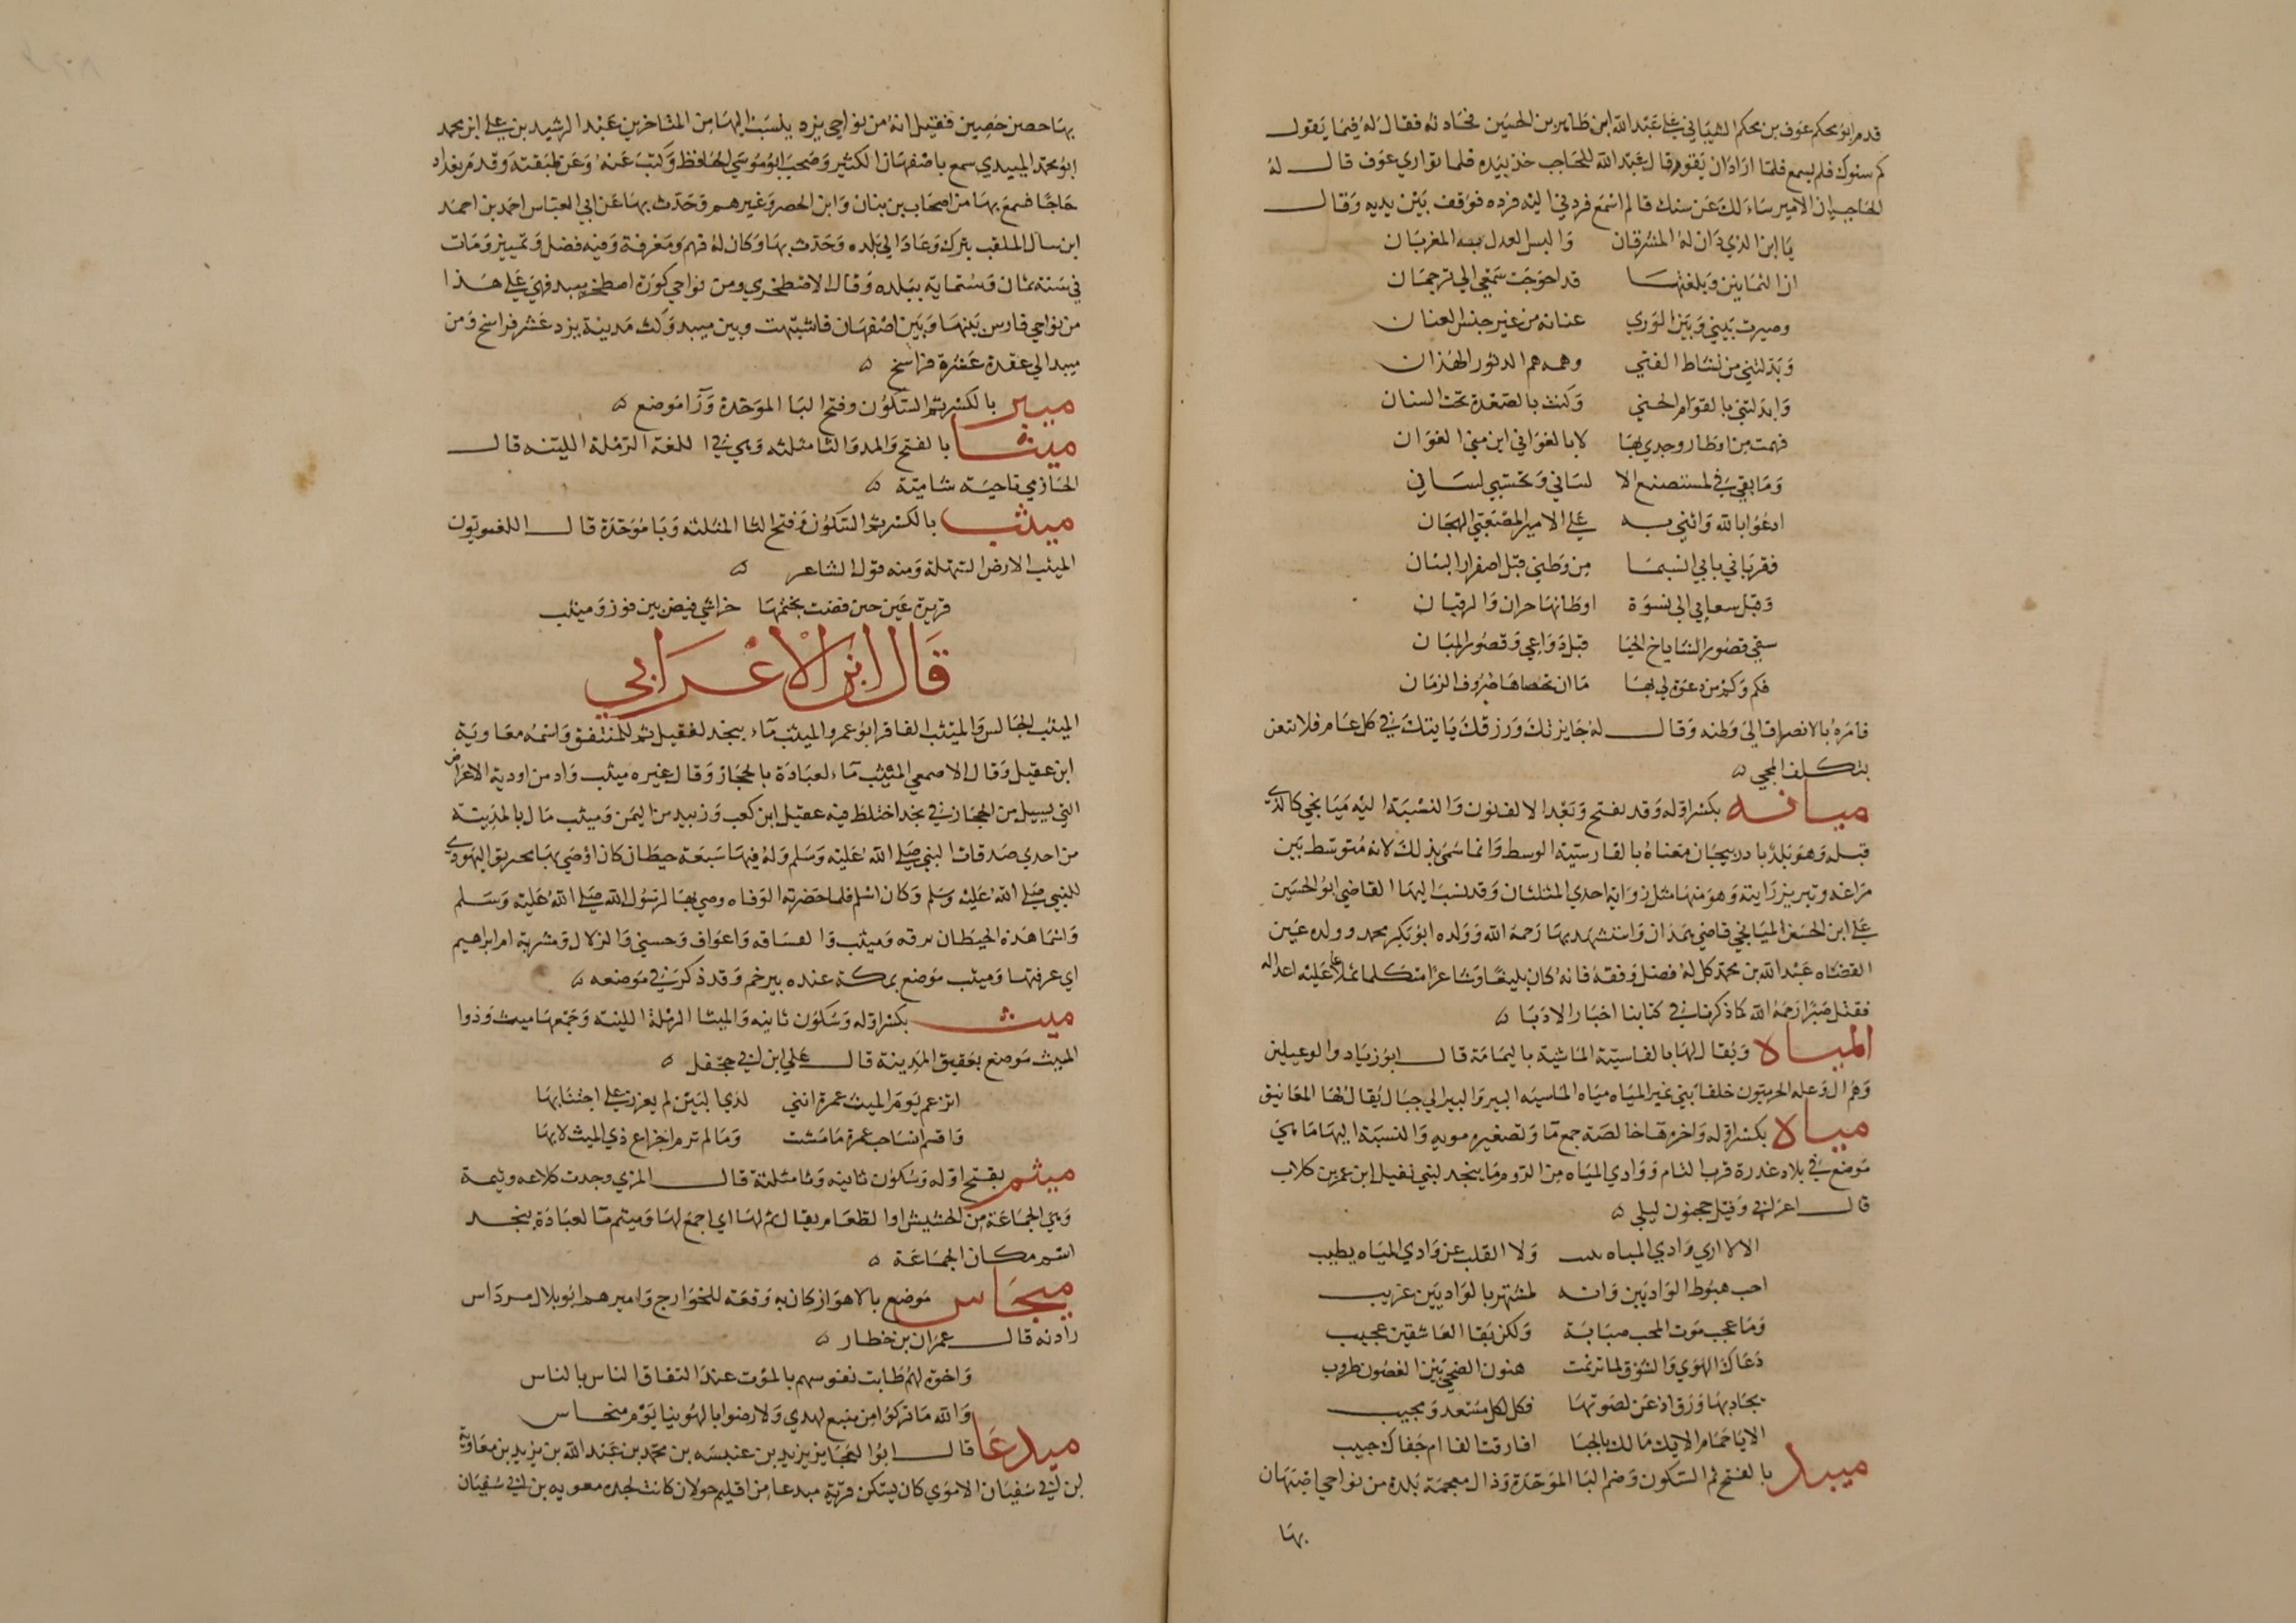 قدم ابو محكم عوف بن محكم الشيباني على عبد الله ابن طاهر بن الحسين فحادثه فقال له فيما يقول
كم سنوك فلم يسمع فلما اراد ان يقوم قال عبد الله للحاجب خذ بيده فلما توارى عوف قال له
الحاجب ان الامير سالك عن سنك قال لم اسمع فردني اليه فرده فوقف بين يديه وقال
يا ابن الذي دان له المشرقان والبس العدل به المغربان
ان الثمانين وبلغتها قد احوجت سمعي الى ترجمان
وصيرت بيني وبين الورى عنانة من غير جنس العنان
وبدلتني من نشاط الفتى وهمه هم الدثور الهدان
وابدلتني بالقوام الحنى وكنت بالصعدة تحت السنان
فهمت من اوطار وجدي بها لا بالغواني اين مني الغوان
وما بقي في لمستصنع الا لساني وبحسبي لساني
ادعوا بالله واثني به على الامير المصعبي الهجان
فقرباني بابي انتما من وطني قبل اصفرار البنان
وقبل منعاي الى نسوة اوطانها حران والرقتان
سقى قصور الشاذياخ الحيا قبل وداعي وقصور الميان
فكم وكم من دعوة لي بها ما ان تخطاها صروف الزمان
فامره بالانصراف الى وطنه وقال له جايزتك ورزقك ياتيك في كل عام فلا تتعن
بتكلف المجي ه
ميانه بكسر اوله وقد يفتح وبعد الالف نون والنسبة اليه ميانجي كالذي
قبله وهو بلد باذربيجان معناه بالفارسية الوسط وانما سمي بذلك لانه متوسط بين
مراغه وتبريز زاية وهو منها مثل زواية احدي المثلثان وقد نسب اليها القاضي ابو الحسين
علي ابن الحسن الميانجي قاضي همذان واستشهد بها رحمه الله وولده ابو بكر محمد وولده عين
القضاه عبد الله بن محمد كل له فضل وفقه فانه كان بليغا وشاعرا متكلما تمالا عليه اعداله
فقتل صبرا رحمه الله كما ذكرنا في كتابنا اخبار الادبا ه
المياه ويقال لها بالفاسية الماشية باليمامة قال ابو زياد والوعيلين
وهم ال وعله الحرميون خلفا بني غير المياه مياه الماسيه البير والبير الى جبال يقال لها المعانيق
مياه بكسر اوله واخره هاء خالصة جمع ما وتصغيره مويه والنسبة اليها ماءي
موضع في بلاد عذرة قرب الشام ووادي المياه من اكرم ما بنجد لبني نفيل ابن عمر بن كلاب
قال اعرابي وقيل مجنون ليلى ه
الا لا ارى وادي المياه يثيب ولا القلب عن وادي المياه يطيب
احب هبوط الواديين وانه لمشتهر بالواديين غريب
وما عجب موت المحب صبابة ولكن بقا العاشقين عجيب
دعاك الهوى والشوق لما ترنمت هتوف الضحى بين الغصون طروب
تجاذبها ورق اذعن لصوتها فكل لكل مسعد ومجيب
الا يا حمام الايك مالك باكيا افارقت الفا ام جفاك حبيب
ميبد بالفتح ثم السكون وضم البا الموحدة وذال معجمة بلدة من نواحي اصبهان
بها
بها حصن حصين فقيل انه من نواحي يزد ينسب اليها من المتاخرين عبد الرشيد بن علي ابن محمد
ابو محمد الميبدي سمع باصفهان الكثير وصحب ابو موسى الحافظ وكتب عنه وعن طبقته وقدم بغداد
حاجا فسمع بها من اصحاب بن بنان وابن الحصر وغيرهم وحدث بها عن ابي العباس احمد بن احمد
ابن سال الملقب بترك وعاد الى بلده وحدث بها وكان له فهم ومعرفة وفيه فضل وتمييز ومات
في سنة ثمان وستماية ببلده وقال الاصطخري ومن نواحي كورة اصطخر ميبد فهي على هذا
من نواحي فارس بينها وبين اصفهان فاشتبهت وبين ميبد وكث مدينة يزد عشر فراسخ ومن
ميبد الى عقدة عشرة فراسخ ه
ميبر بالكسر ثم السكون وفتح البا الموحدة ورا موضع ه
ميثا بالفتح والمد والثا مثلثه وهي في اللغة الرملة اللينه قال
الحازمي ناحية شامية ه
ميثب بالكسر ثم السكون وفتح الثا المثلثه وبا موحدة قال اللغويون
الميثب الارض السهلة ومنه قول الشاعر ه
قريرة عين حين فضت بختمها خراشي فيض بين فوز وميثب
قال ابن الاعرابي
الميثب الجالس والميثب القافز ابو عمرو الميثب ماء بنجد لعقيل ثم للمنتفق واسمه معاوية
ابن عقيل وقال الاصمعي الميثب ماء لعبادة بالحجاز وقال غيره ميثب واد من اودية الاعراض
التي تسيل من الحجاز في نجد اختلط فيه عقيل ابن كعب وزبيد من اليمن وميثب مال بالمدينة
من احدى صدقات النبي صلى الله عليه وسلم وله فيها سبعة حيطان كان اوصى بها مخيريق اليهودي
للنبي صلى الله عليه وسلم وكان اسلم فلما حضرته الوفاه وصى بها لرسول الله صلى الله عليه وسلم
واسما هذه الحيطان برقه وميثب والصافه واعواف وحسني والزلال ومشربة ام ابراهيم
اي عرفتها وميثب موضع بمكة عنده بير خم وقد ذكر في موضعه ه
ميث بكسر اوله وسكون ثانيه والميثا الرملة اللينه وجمعها ميث وذوا
الميث موضع بعقيق المدينة قال علي ابن ابي جحفل ه
اتزعم يوم الميث عمرة انني لدى البين لم يعزز علي اجتنابها
واقسم انسا حب عمرة ما مشت وما لم ترم اجزاع ذي الميث لابها
ميثم بفتح اوله وسكون ثانيه وثا مثلثة قال المزي وجدت كلاءه وثيمة
وهي الجماعة من الحشيش او الطعام يقال ثم لها اي اجمع لها وميثم ما لعبادة بنجد
اسم مكان الجماعة ه
ميجاس موضع بالاهواز كان به وقعة للخوارج واميرهم ابو بلال مرداس
رادنه قال عمران بن خطار ه
واخوة لهم طابت نفوسهم بالموت عند التفاق الناس بالناس
والله ما تركوا من منبع لهدي ولا رضوا بالهوينا يوم منحاس
ميدعا قال ابو العجايز يزيد بن عنبسه بن محمد بن عبد الله بن يزيد بن معاوية
ابن ابي سفيان الاموي كان يسكن قرية ميدعا من اقليم حولان كانت لجده معويه بن ابي سفيان